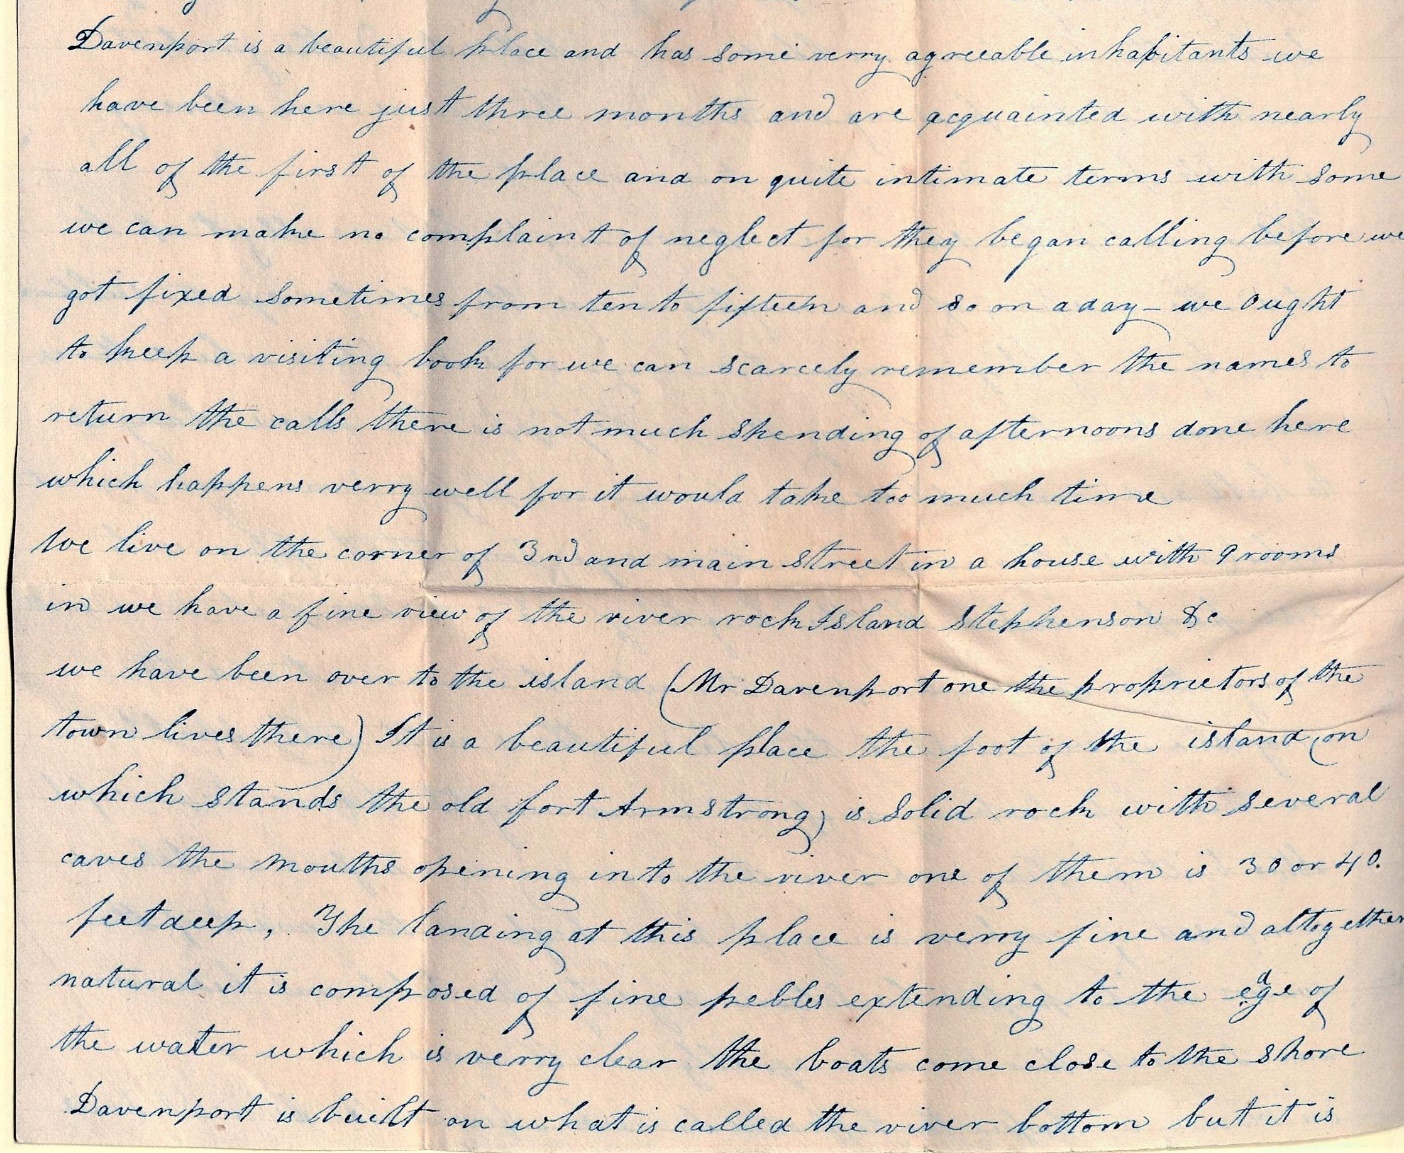 Davenport is a beautiful place and has some verry agreeable inhabitants we
have been here just three months and are acquainted with nearly
all of the first of the place and on quite intimate terms with some
we can make no complaint of neglect for they began calling before we
got fixed sometimes from ten to fifteen and so on a day – we ought
to keep a visiting book for we can scarcely remember the names to
return the calls there is not much spending of afternoons done here
which happens verry well for it would take too much time
We live on the corner of 3rd and main street in a house with 9 rooms
in we have a fine view of the river rock Island Stephenson &c
we have been over to the island (Mr Davenport one the proprietors of the
town lives there) It is a beautiful place the foot of the island (on
which stands the old fort Armstrong) is solid rock with several
caves the mouths opening in to the river one of them is 30 or 40.
feet deep, The landing at this place is verry fine and altogether
natural it is composed of fine pebles extending to the edge of
the water which is verry clear the boats come close to the shore
Davenport is built on what is called the river bottom but it is